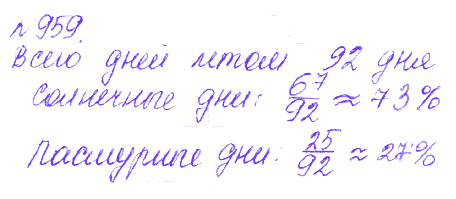 № 959.
Всего дней летом 92 дня
Солнечные дни: 67/92 ≈ 73%
Пасмурные дни: 25/92 ≈ 27%